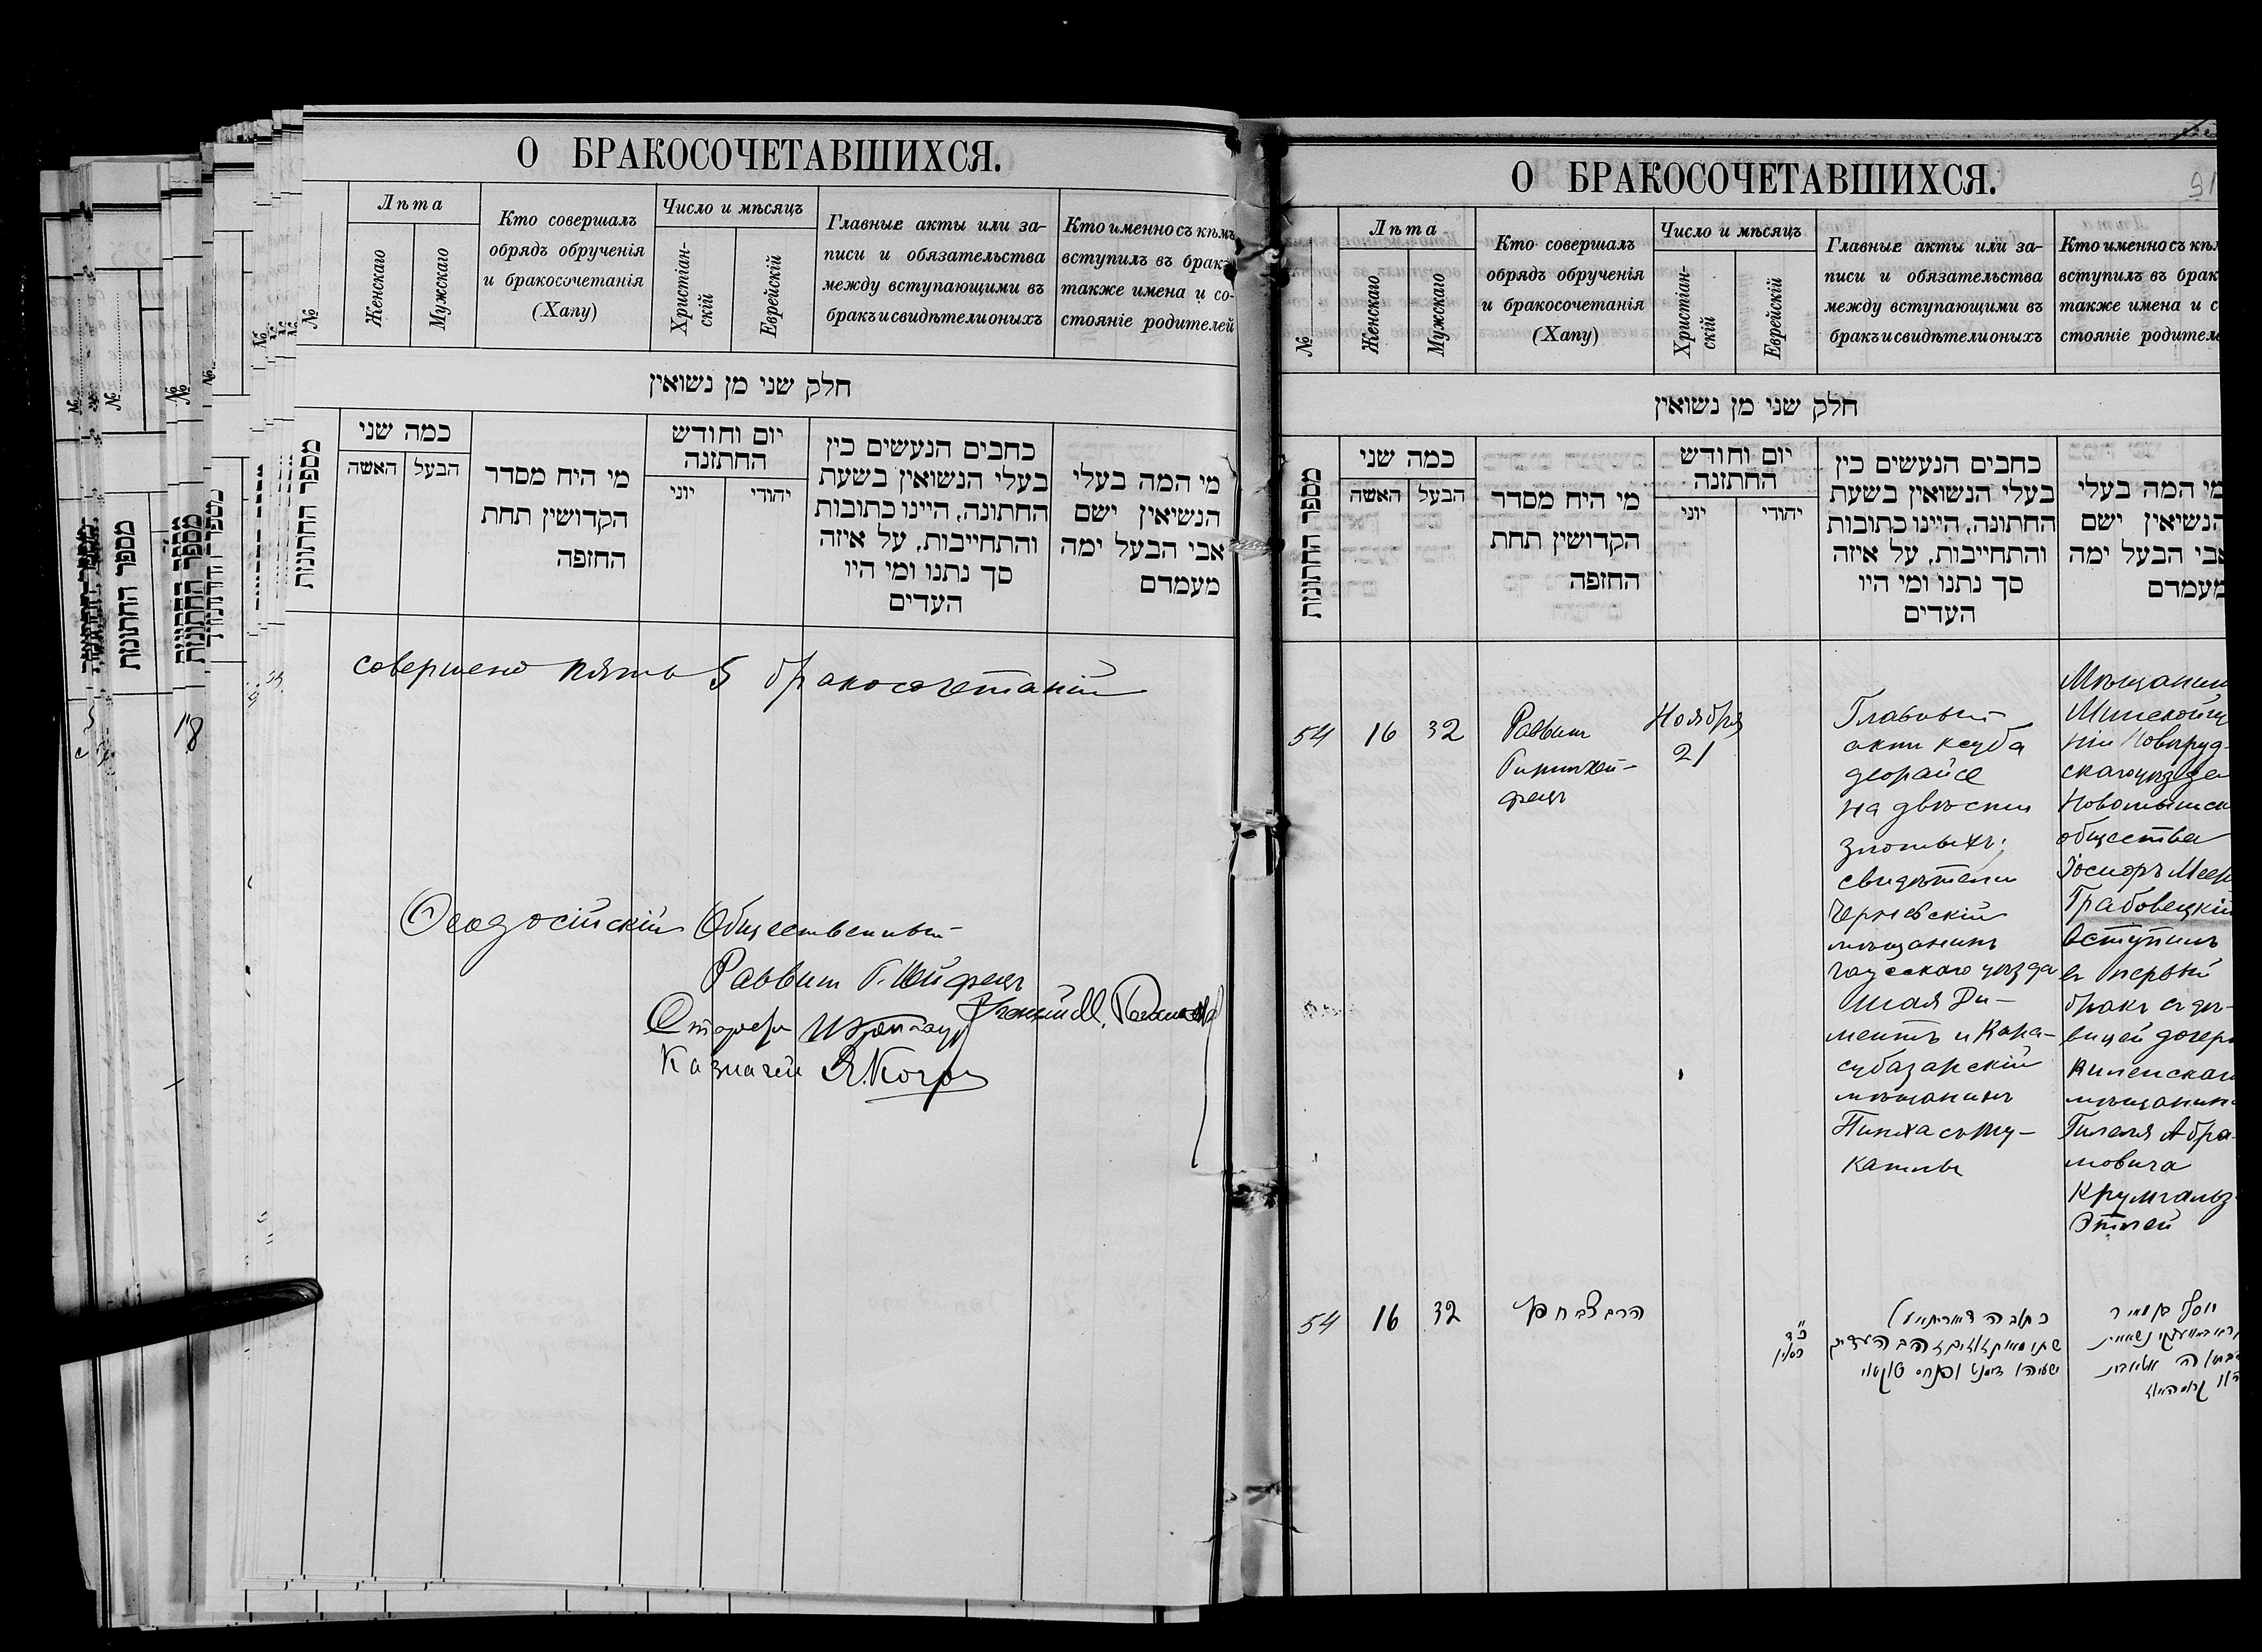 О БРАКОСОЧЕТАВШИХСЯ.
№
Лѣта
Женскаго
Мужскаго
Кто совершалъ
обрядъ обрученія
и бракосочетанія
(Хапу)
Число и мѣсяцъ
Христіан-
скій
Еврейскій
Главные акты или за-
писи и обязательства
между вступающими въ
бракъ и свидѣтели оныхъ
Кто именно съ кѣмъ
вступилъ въ бракъ
также имена и со-
стояніе родителей
חלק שני מן נשואין
מספר החתונות
כמה שני
האשה
הבעל
מי היח מסדר
הקדושין תחת
החזפה
יום וחודש
החתזנה
יוני
יהודי
כחבים הנעשים כין
בעלי הנשואין בשעת
החתונה, היינו כתובות
והתחייבות, על איזה
סך נתנו ומי היו
העדים
מי המה בעלי
הנשיאין ישם
אבי הבעל ימה
מעמדם
совершено пять 5 бракосочетаній
Ѳеодосійскій Общественный
Раввинъ Г. Шейфецъ
Староста
Казначей
О БРАКОСОЧЕТАВШИХСЯ.
91
№
Лѣта
Женскаго
Мужскаго
Кто совершалъ
обрядъ обрученія
и бракосочетанія
(Хапу)
Число и мѣсяцъ
Христіан-
скій
Еврейскій
Главные акты или за-
писи и обязательства
между вступающими въ
бракъ и свидѣтели оныхъ
Кто именно съ кѣм
вступилъ въ брак
также имена и с
стояніе родителе
חלק שני מן נשואין
מספר החתונות
כמה שני
האשה
הבעל
מי היח מסדר
הקדושין תחת
החזפה
יום וחודש
החתזנה
יוני
יהודי
כחבים הנעשים כין
בעלי הנשואין בשעת
החתונה, היינו כתובות
והתחייבות, על איזה
סך נתנו ומי היו
העדים
מי המה בעלי
הנשיאין ישם
אבי הבעל ימה
מעמדם
54
16
32
Раввинъ
фецъ
Ноября
21
Главный
актъ ксуба
деорайсе
на двѣсти
злотыхъ;
свидѣтели
мѣщанинъ
уѣзда
Шая Ди-
ментъ и Кара-
субазарскій
мѣщанинъ
Пинхасъ Ту-
Мѣщанин
Минской гу
ніи Новогруд-
скаго уѣзда
общества
Іосифъ Меер
Грабовецкій
вступилъ
въ первый
бракъ съ дѣ-
вицей дочер
Виленскаго
мѣщанин
Гилеля Абра-
мовича
Крумгальз
Этлей
54
16
32
כ"ד
כסלו
כתובה דאורייתא
ישעיהו דימנט ופנחס
יוסף בן מאיר